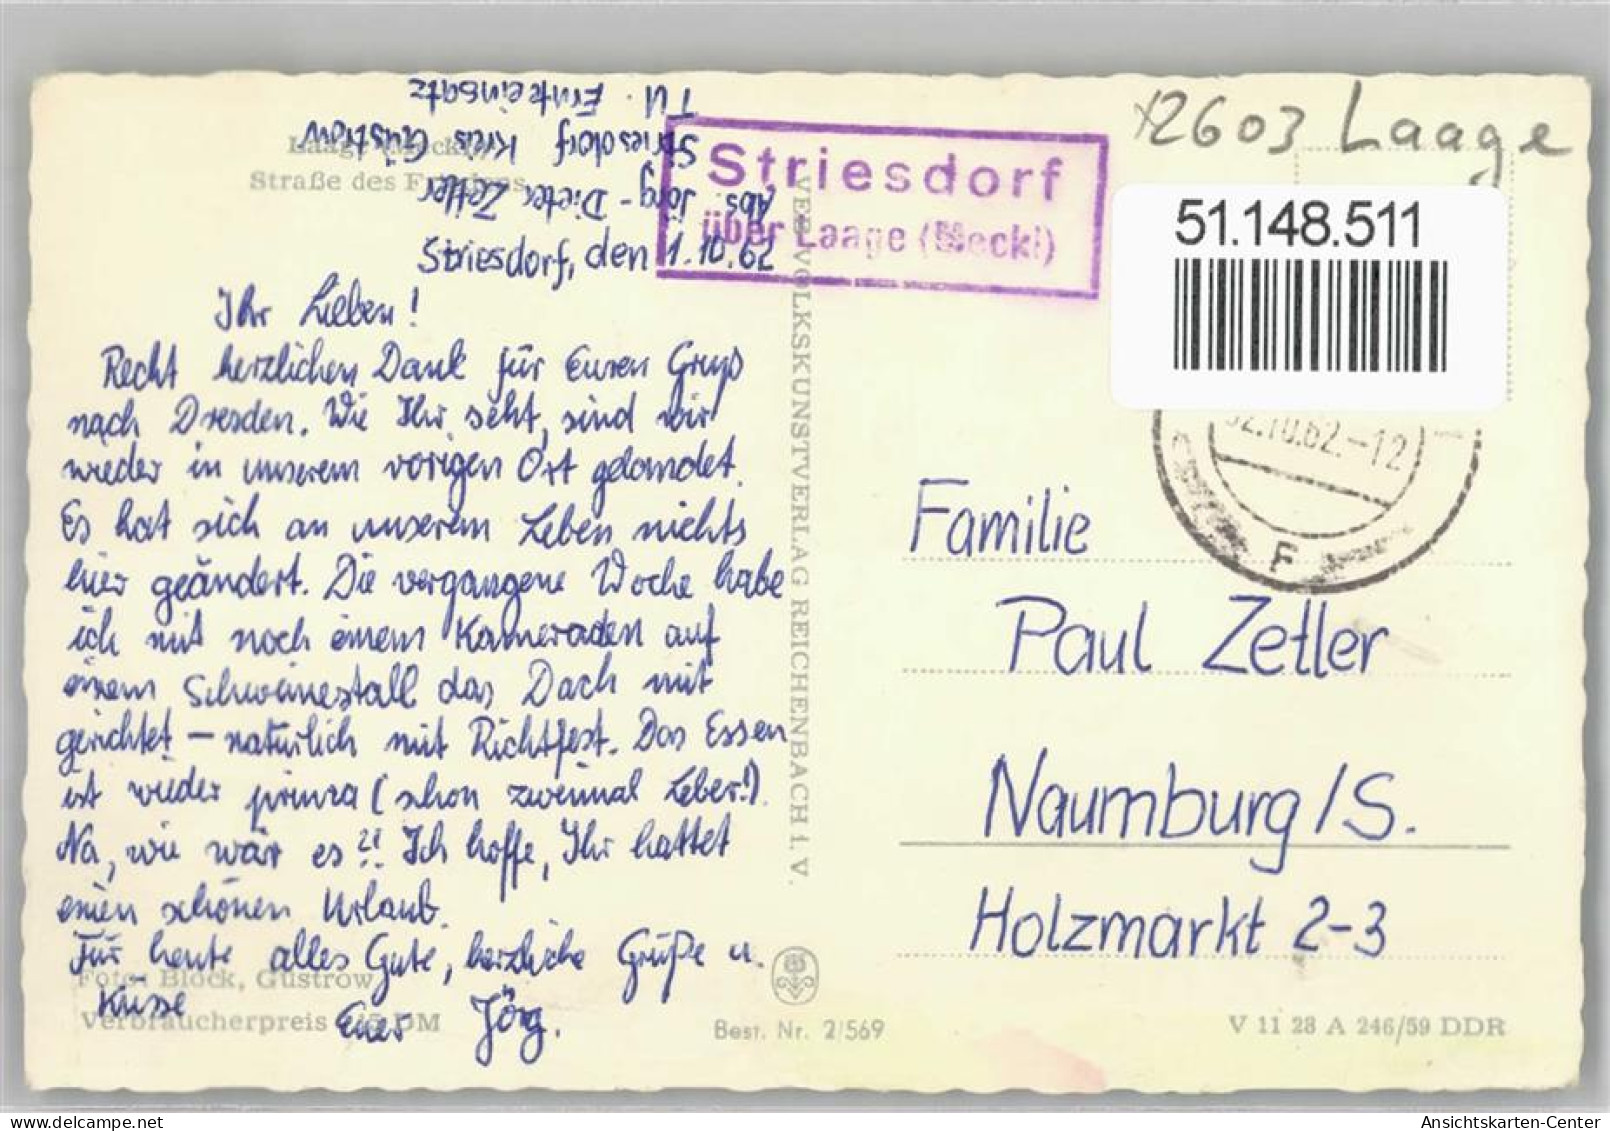 Laage (Meckl)
Straße des Friedens
Abs. Jörg-Dieter Zetler
Striesdorf Kreis Güstrow
TU. Ernteeinsatz
Striesdorf
über Laage (Meckl)
x2603 Laage
51.148.511
02.10.62.-12
F
Striesdorf, den 1.10.62
Ihr Lieben!
Recht herzlichen Dank für Euren Gruß
nach Dresden. Wie Ihr seht, sind wir
wieder in unserem vorigen Ort gelandet.
Es hat sich an unserem Leben nichts
hier geändert. Die vergangene Woche habe
ich mit noch einem Kameraden auf
einem Schweinestall das Dach mit
gerichtet – natürlich mit Richtfest. Das Essen
ist wieder prima (schon zweimal Leber!).
Na, wie war es?! Ich hoffe, Ihr hattet
einen schönen Urlaub.
Für heute alles Gute, herzliche Grüße u.
Küsse Euer Jörg.
Foto: Block, Güstrow
Verbraucherpreis DM
VEB VOLKSKUNSTVERLAG REICHENBACH i. V.
Best. Nr. 2/569
Familie
Paul Zetler
Naumburg/S.
Holzmarkt 2-3
V 11 28 A 246/59 DDR
Ansichtskarten-Center